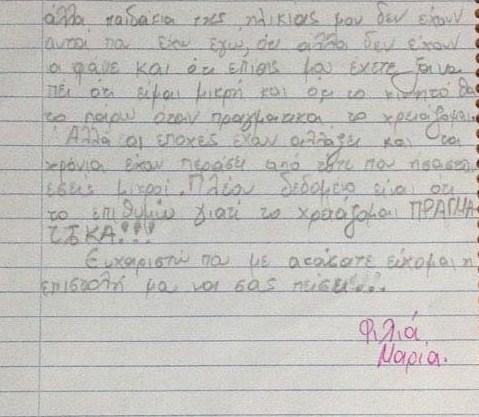 άλλα παιδάκια της ηλικίας μου δεν έχουν
αυτά που έχω εγώ, ότι άλλοι δεν έχουν
α φάνε και ότι επίσης μου έχετε ξανα
πεί ότι είμαι μικρή και ότι το κινητό θα
το πάρω όταν πραγματικα το χρειάζομαι.
Αλλά οι εποχές έχουν αλλάξει και τα
χρόνια έχουν περάσει από τότε που ήσαστε
εσείς μικροί. Πλέον δεδομένο είναι ότι
το επιθυμώ γιατί το χρειάζομαι ΠΡΑΓΜΑ
ΤΙΚΑ!!!
Ευχαριστώ που με ακούσατε εύχομαι η
επιστολή μου να σας πείσει...
Φιλιά
Μαρία.